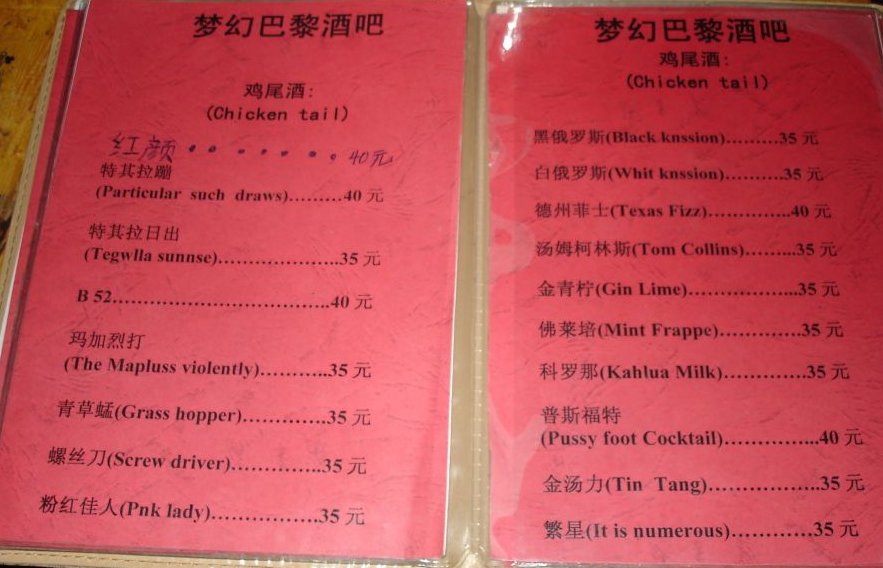 梦幻巴黎酒吧
鸡尾酒:
(Chicken tail)
红颜........40元
特其拉蹦
(Particular such draws).........40 元
特其拉日出
(Tegwlla sunnse)....................35 元
B 52...................................40 元
玛加烈打
(The Mapluss violently)...........35 元
青草蜢(Grass hopper)..............35 元
螺丝刀(Screw driver)...............35 元
粉红佳人(Pnk lady)..................35 元
梦幻巴黎酒吧
鸡尾酒:
(Chicken tail)
黑俄罗斯(Black knssion).........35 元
白俄罗斯(Whit knssion)..........35 元
德州菲士(Texas Fizz)..............40 元
汤姆柯林斯(Tom Collins).........35 元
金青柠(Gin Lime)..................35 元
佛莱培(Mint Frappe).............35 元
科罗那(Kahlua Milk).............35 元
普斯福特
(Pussy foot Cocktail)...............40 元
金汤力(Tin Tang)..................35 元
繁星(It is numerous).............35 元